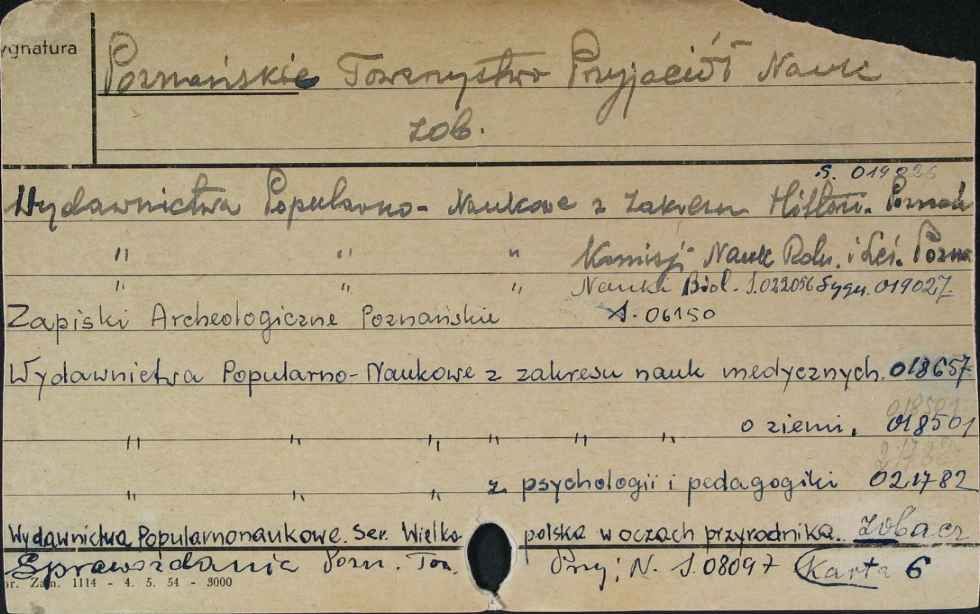 ygnatura
Poznańskie Towarzystwo Przyjaciół Nauk
zob.
S. 019826
Wydawnictwa Popularno-Naukowe z Zakresu Poznań
" " " Komisji Nauk Roln. i Leś. Pozna
" " " Nauki Biol. S.022056 Sygn. 019027
Zapiski Archeologiczne Poznańskie S. 06150
Wydawnictwa Popularno-Naukowe z zakresu nauk medycznych. 018657
018501
" " " " " " o ziemi. 018501
" " " z psychologii i pedagogiki 021782
Wydawnictwa Popularnonaukowe. Ser. Wielkopolska w oczach przyrodnika. zobacz
Sprawozdania Pozn. Tow. Przyj. N. S.08097 Karta 6
nr. Zam. 1114 - 4. 5. 54 - 3000